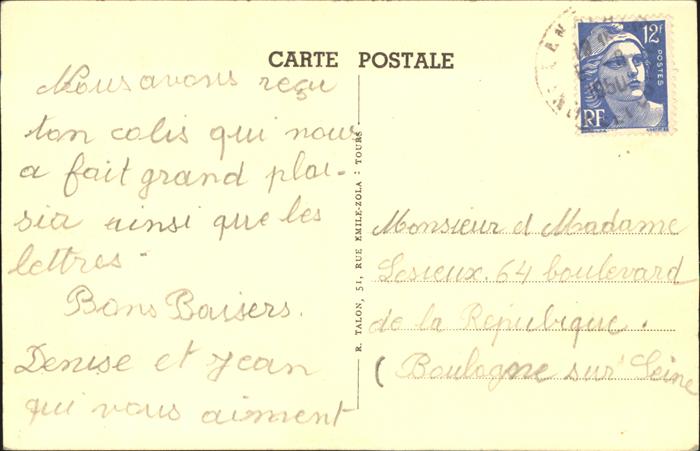 CARTE POSTALE
Nous avons reçu
ton colis qui nous
a fait grand plai-
sir ainsi que les
lettres.
Bons Baisers.
Denise et Jean
qui vous aiment
R. TALON, 51, RUE EMILE-ZOLA : TOURS
12F
POSTES
RF
1950
Monsieur et Madame
Lesieux. 64 boulevard
de la Repubique.
(Boulogne sur Seine